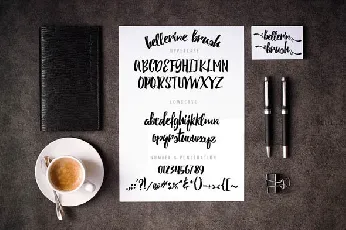 bellerine brush
UPPERCASE
ABCDEFGHIJKLMN
OPQRSTUVWXYZ
LOWERCASE
abcdefghijklmn
opqrstuvwxyz
NUMBER & PUNCTUATION
0123456789
bellerine
brush